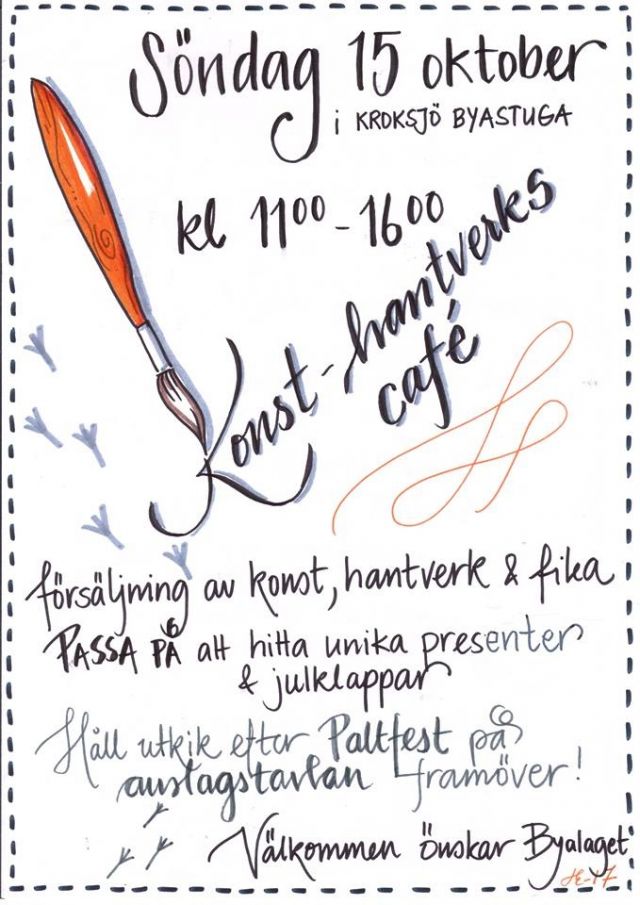 Söndag 15 oktober
i KROKSJÖ BYASTUGA
kl 11⁰⁰ - 16⁰⁰
Konst-hantverks
café
försäljning av konst, hantverk & fika
PASSA PÅ att hitta unika presenter
& julklappar
Håll utkik efter Paltfest på
anslagstavlan framöver!
Välkommen önskar Byalaget
HE-17